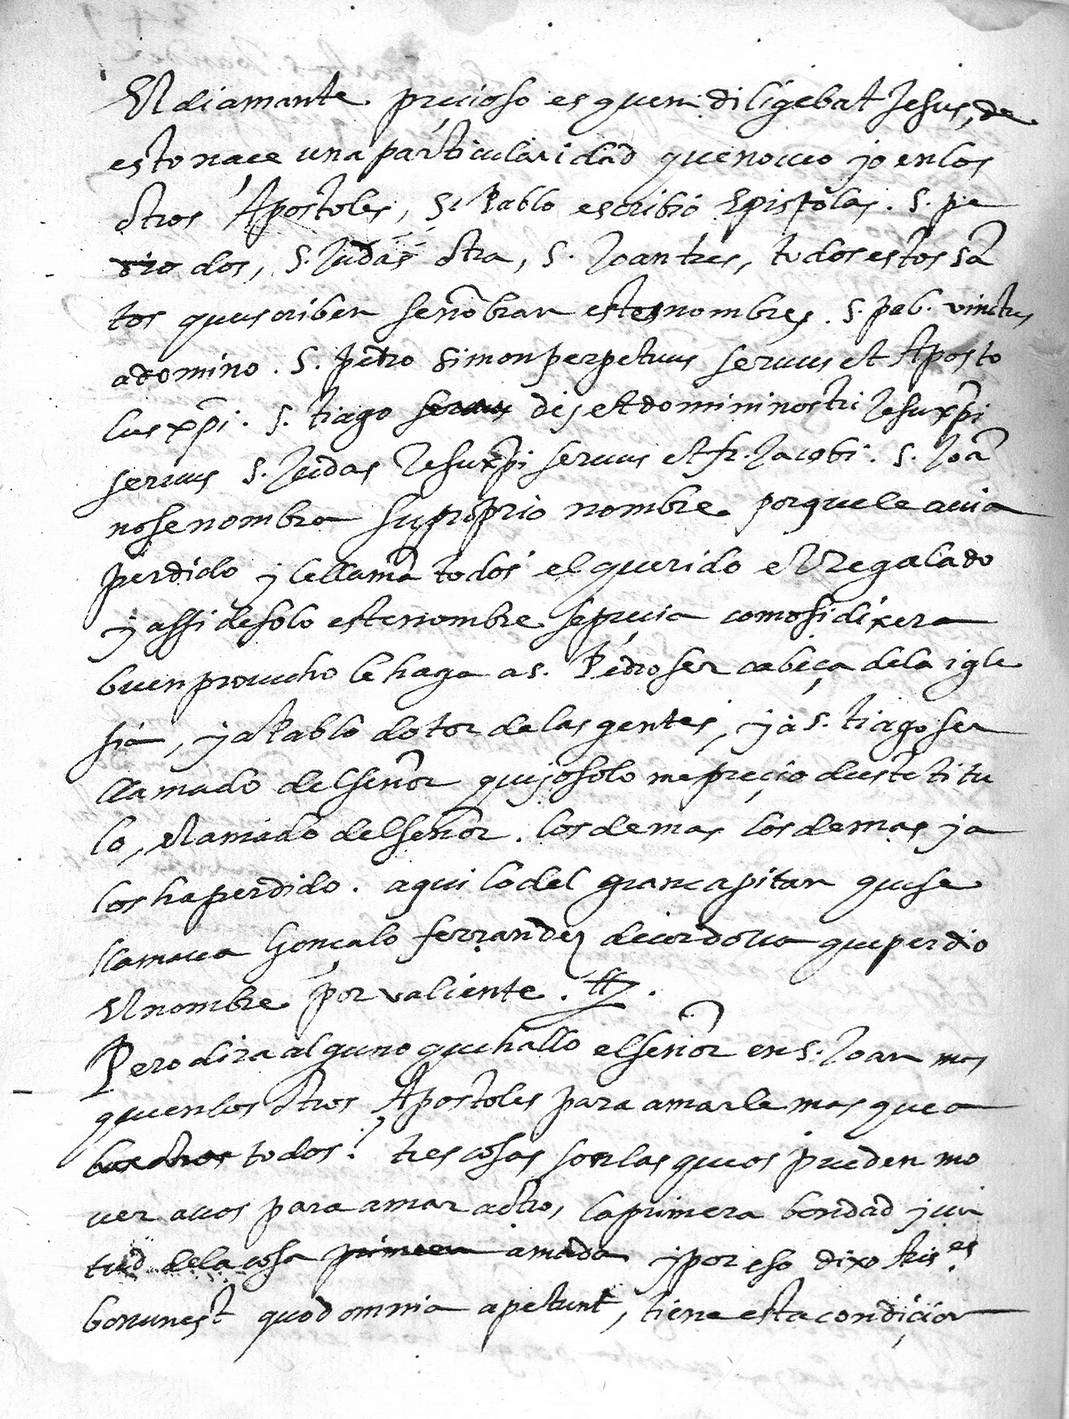 El diamante precioso es quem diligebat Jesus, de
esto naçe una particularidad que no veo yo en los
otros Apostoles, S. Pablo escribió Epistolas. S. pe
dro dos, S. Judas otra, S. Joan tres, todos estos sã
tos que scriben se nõbran estos nombres. S. pab. vinctus
a domino. S. Pedro Simon perpetuus servus et Aposto
lus xp̃i. S. tiago servus dej et domini nostri Jesu xp̃i
servus S. Judas Jesu xp̃i servus et fr. Jacobi. S. Joã
no se nombra su proprio nombre porque le avia
perdido y le llamã todos el querido el Regalado
y assi de solo este nombre se precia como si dixera
buen provecho le haga a S. Pedro ser cabeça de la igle
sia, y a Pablo dotor de las gentes, y a S. tiago ser
llamado del señor que yo solo me preçio deste titu
lo, el amado del señor. los demas los demas ya
los ha perdido. aqui lo del gran capitan que se
llamava Gonçalo ferrandez de cordova que perdio
el nombre por valiente.
Pero dira alguno que hallo el señor en S. Joan mas
que en los otros Apostoles para amarle mas que a
los otros todos? tres cosas son las que os pueden mo
ver a vos para amar a otro, la primera bondad y vir
tud de la cosa primera amada y por eso dixo Aris.es
bonum est quod omnia apetunt, tiene esta condiçion